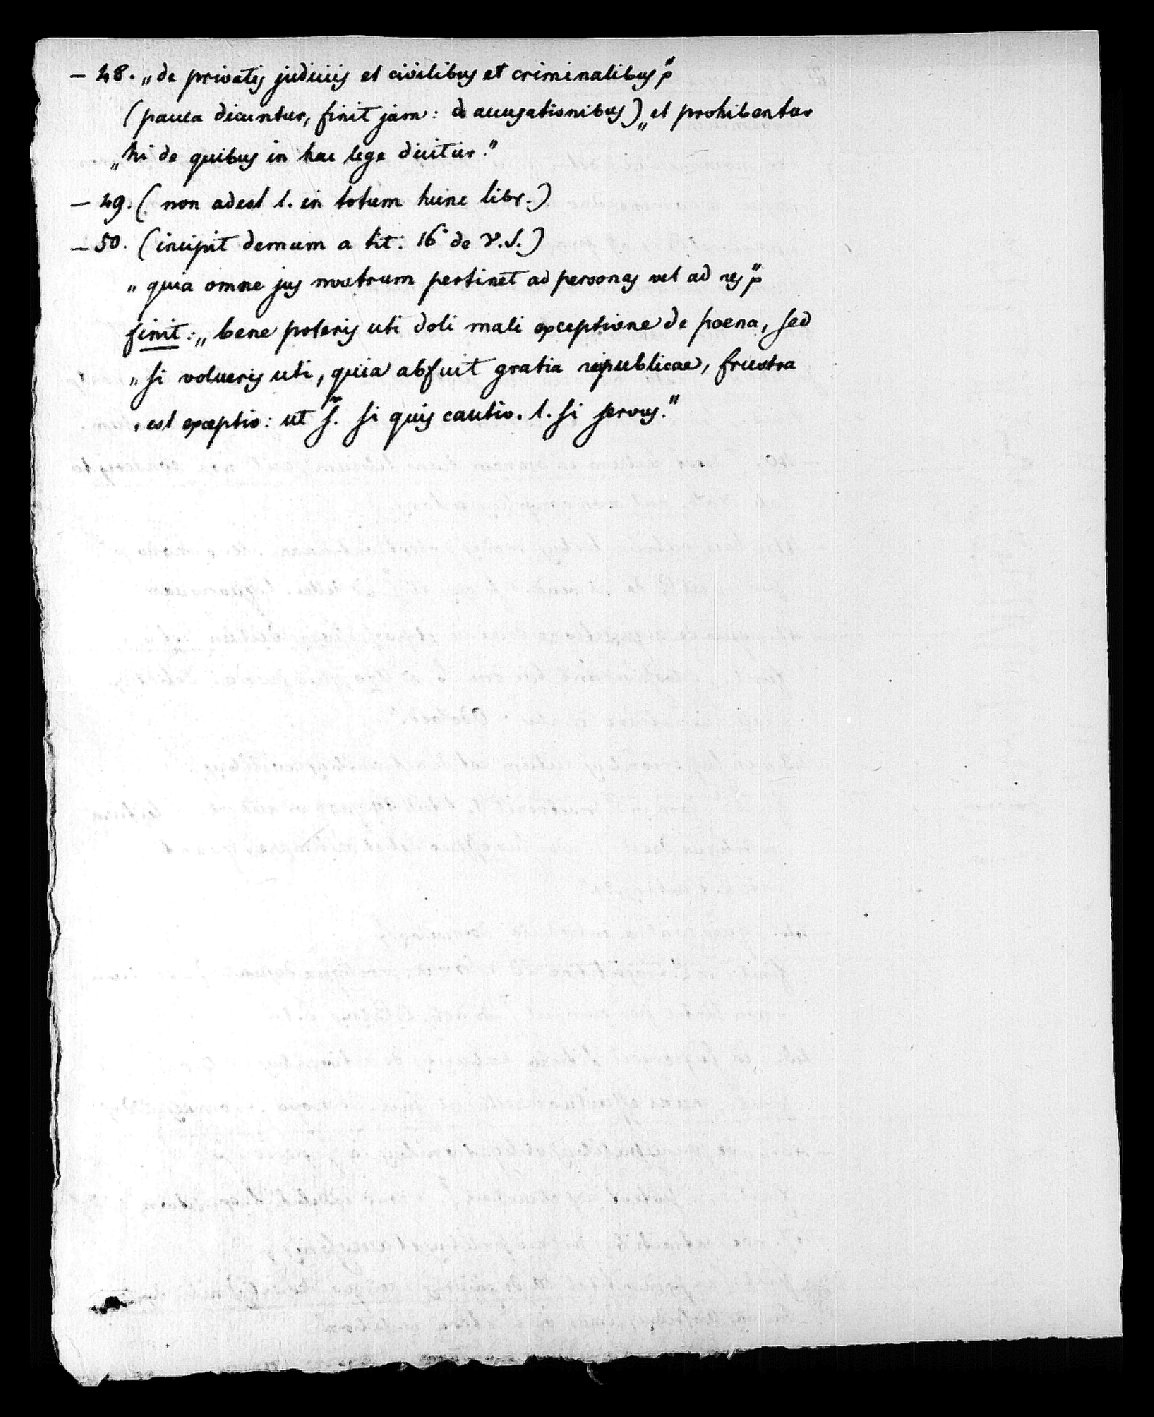 — 48. „de privatis judiciis et civilibus et criminalibus"
(pauca dicuntur, finit jam: de accusationibus) „et prohibentur
„hi de quibus in hac lege dicitur."
— 49. (non adest l. in totum hunc libr.)
— 50. (incipit demum a tit. 16 de V.S.)
„quia omne jus nostrum pertinet ad personas vel ad res"
finit: „bene poteris uti doli mali exceptione de poena, sed
„si volueris uti, quia abfuit gratia reipublicae, frustra
„est exceptio: ut s. si quis cautio. l. si servus."